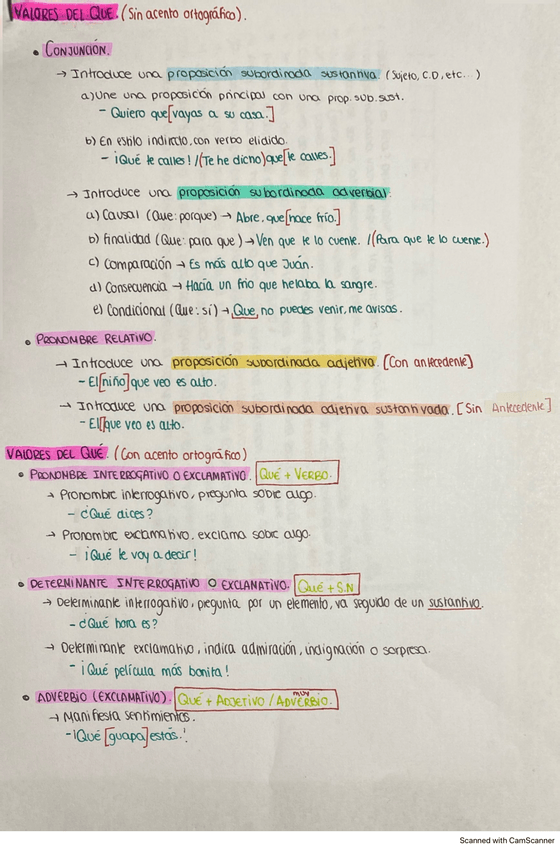 VALORES DEL QUE. (Sin acento ortográfico).
• CONJUNCIÓN.
→ Introduce una proposición subordinada sustantiva (Sujeto, C.D, etc...)
a) Une una proposición principal con una prop. sub. sust.
- Quiero que [vayas a su casa.]
b) En estilo indirecto, con verbo elidido.
- ¡Qué te calles! / (Te he dicho) que [te calles.]
→ Introduce una proposición subordinada adverbial:
a) Causal (Que: porque) → Abre, que [hace frío.]
b) Finalidad (Que: para que) → Ven que te lo cuente. / (Para que te lo cuente.)
c) Comparación → Es más alto que Juán.
d) Consecuencia → Hacía un frio que helaba la sangre.
e) Condicional (Que: sí) → Que no puedes venir, me avisas.
• PRONOMBRE RELATIVO.
→ Introduce una proposición subordinada adjetiva. [Con antecedente]
- El [niño] que veo es alto.
→ Introduce una proposición subordinada adjetiva sustantivada. [Sin Antecedente]
- El [que veo es alto.
VALORES DEL QUÉ. (Con acento ortográfico)
• PRONOMBRE INTERROGATIVO O EXCLAMATIVO. QUÉ + VERBO.
→ Pronombre interrogativo, pregunta sobre algo.
- ¿Qué dices?
→ Pronombre exclamativo, exclama sobre algo.
- ¡Qué le voy a decir!
• DETERMINANTE INTERROGATIVO O EXCLAMATIVO. Qué + S.N
→ Determinante interrogativo, pregunta por un elemento, va seguido de un sustantivo.
- ¿Qué hora es?
→ Determinante exclamativo, indica admiración, indignación o sorpresa.
- ¡Qué película más bonita!
• ADVERBIO (EXCLAMATIVO). QUÉ + ADJETIVO / ADVERBIO. muy
→ Manifiesta sentimientos.
- ¡Qué [guapa] estás!
Scanned with CamScanner